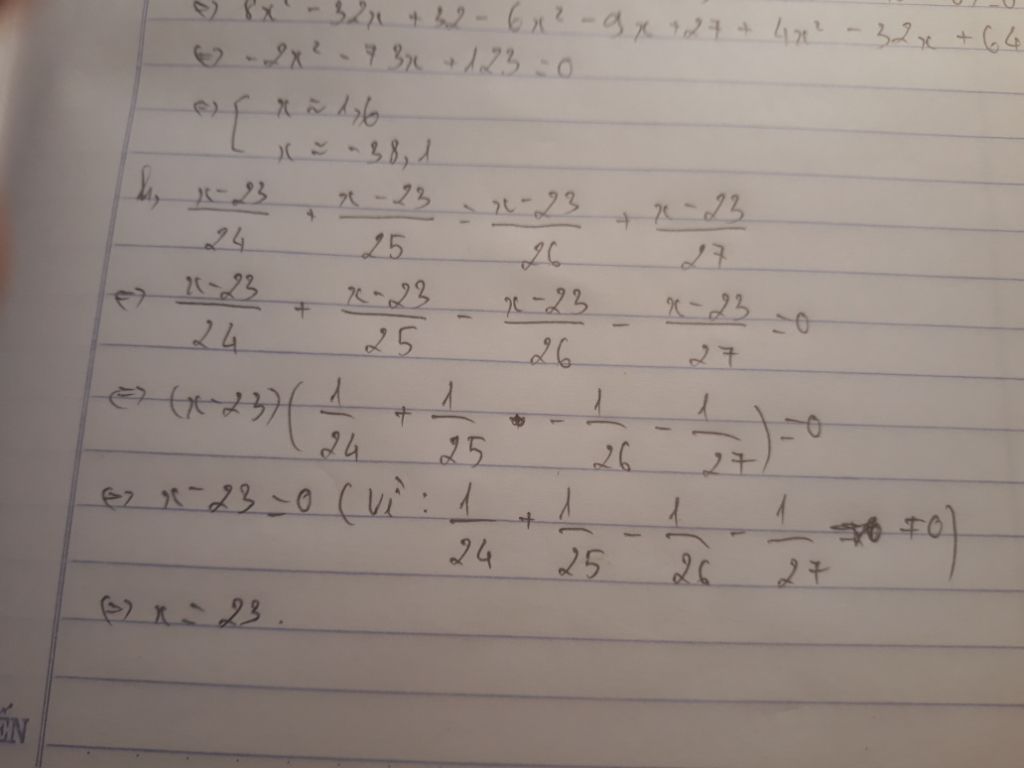 ⇔ 8x² - 32x + 32 - 6x² - 9x + 27 + 4x² - 32x + 64
⇔ -2x² - 73x + 123 = 0
⇔ [ x ≈ 1,6
x ≈ -38,1
h, (x-23)/24 + (x-23)/25 = (x-23)/26 + (x-23)/27
⇔ (x-23)/24 + (x-23)/25 - (x-23)/26 - (x-23)/27 = 0
⇔ (x-23)(1/24 + 1/25 - 1/26 - 1/27) = 0
⇔ x-23 = 0 (Vì: 1/24 + 1/25 - 1/26 - 1/27 ≠ 0)
⇔ x = 23.
ẾN